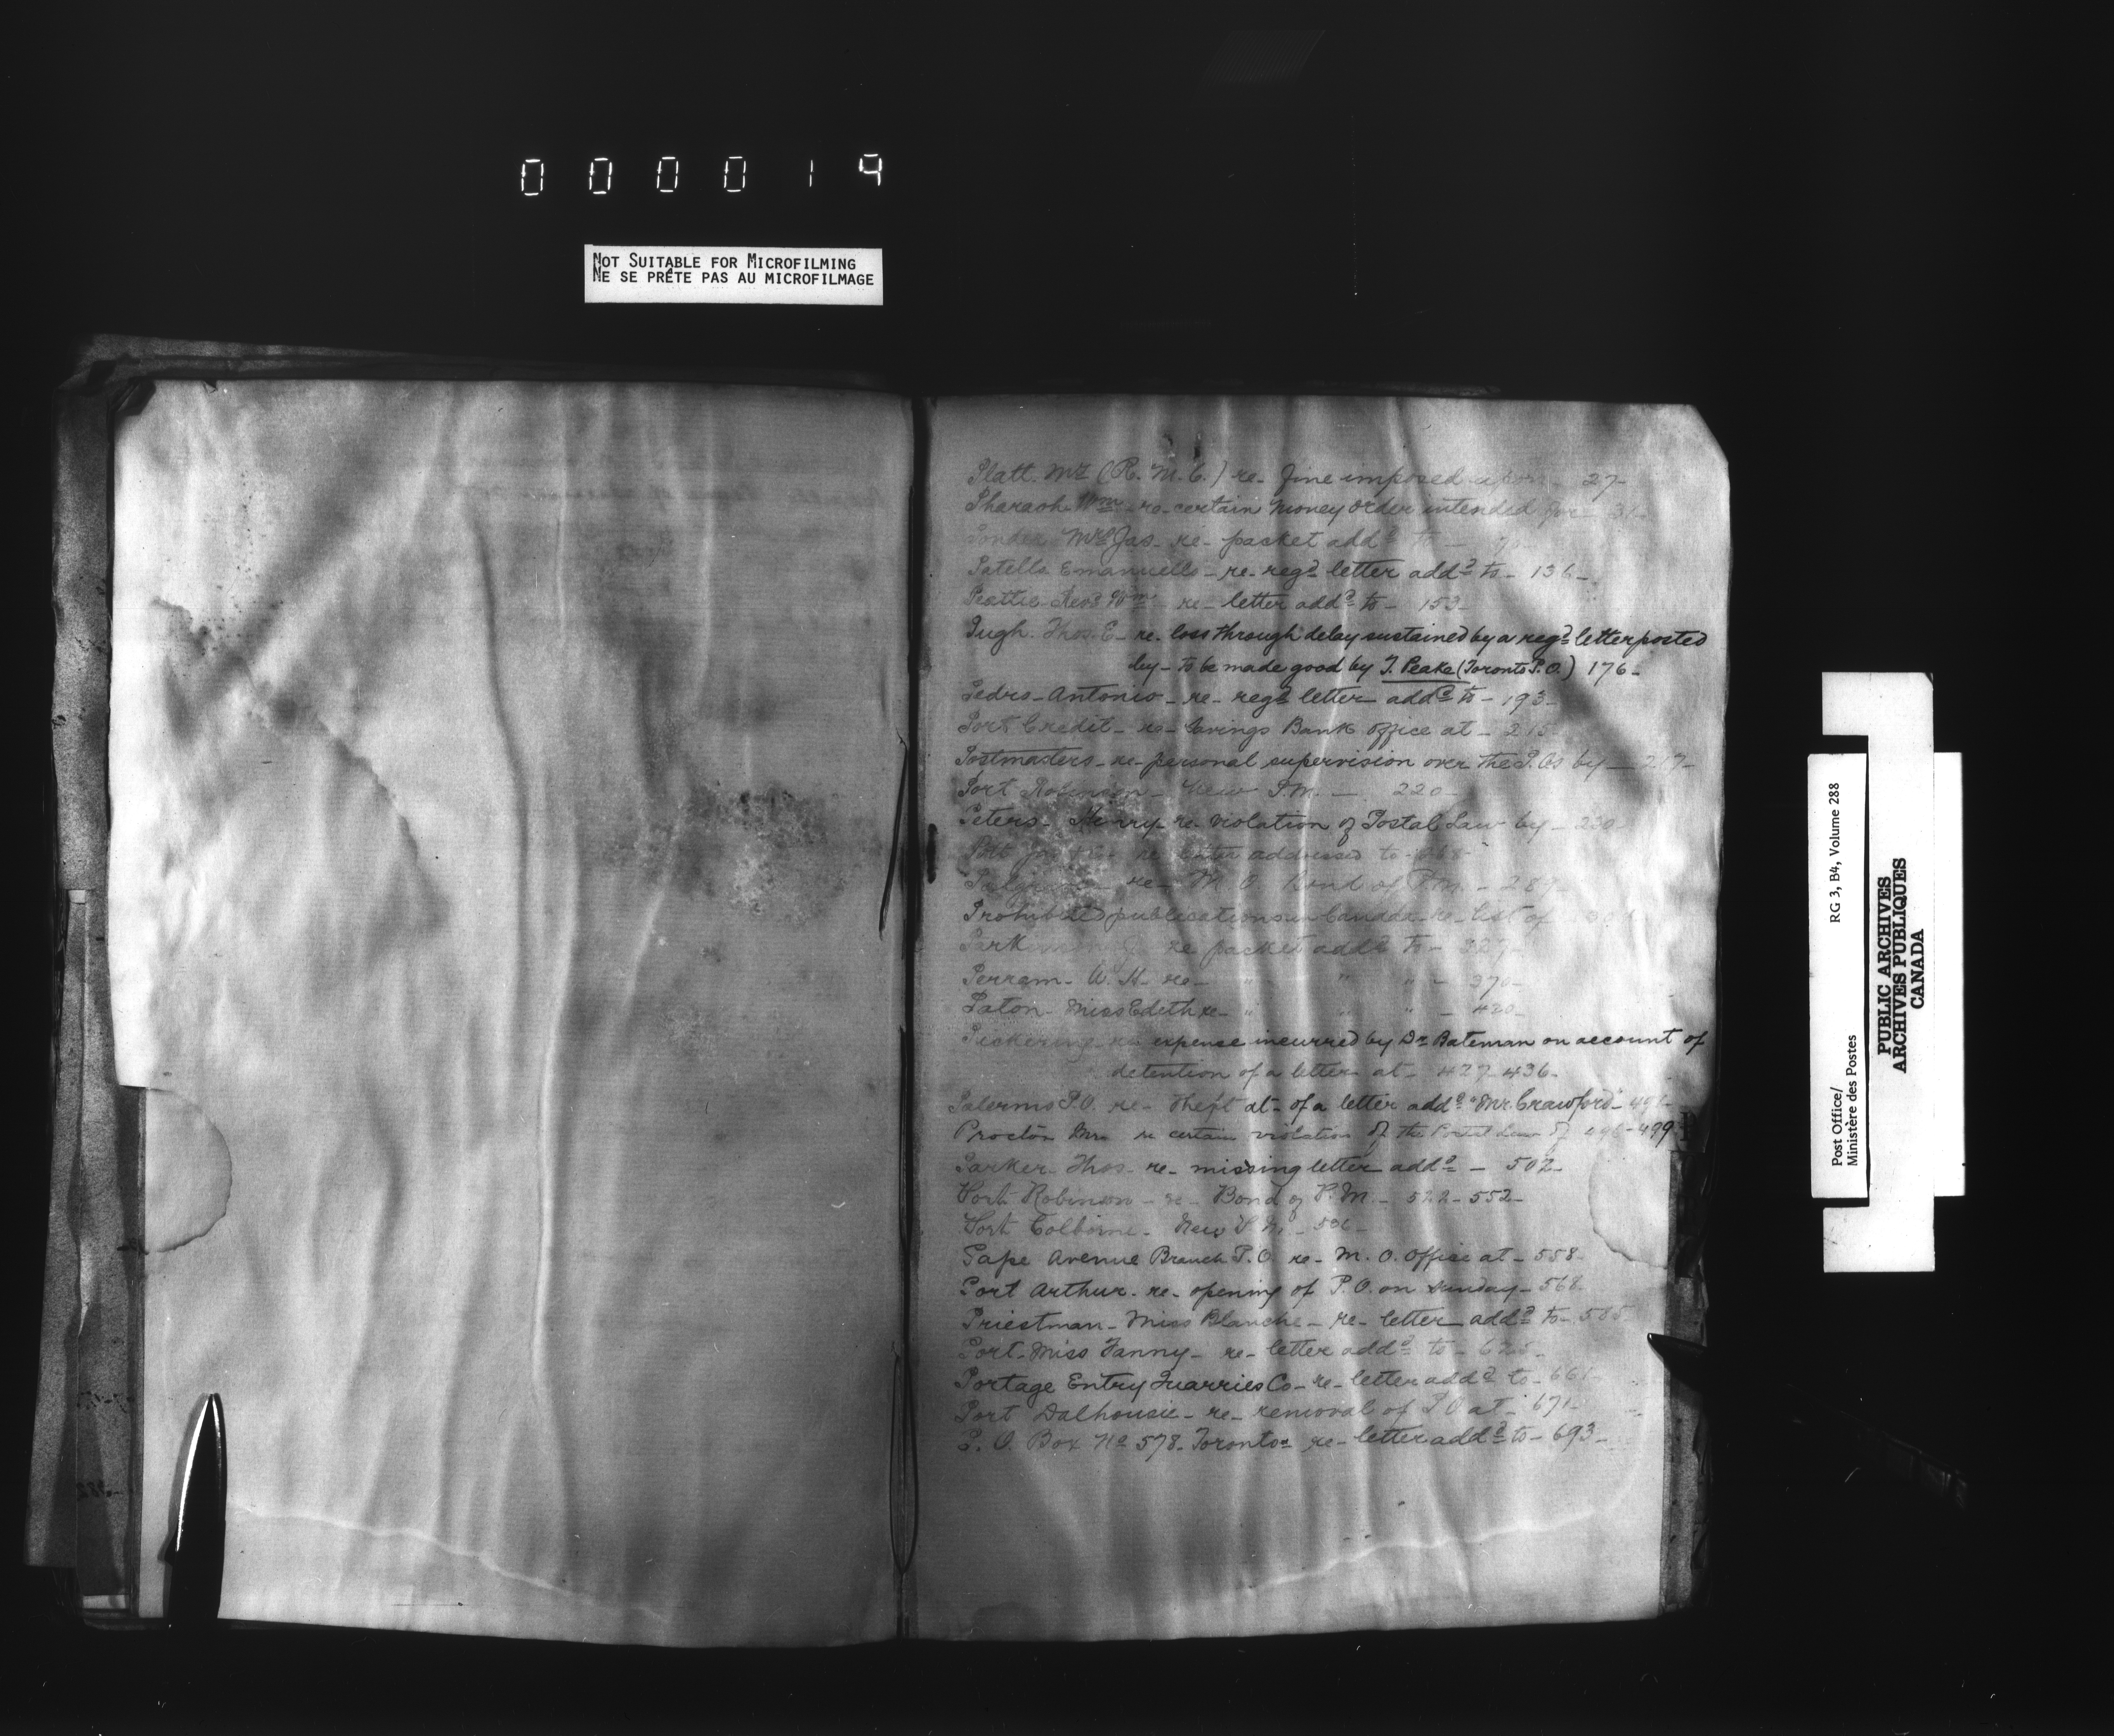 000019
NOT SUITABLE FOR MICROFILMING
NE SE PRÊTE PAS AU MICROFILMAGE
Platt. Mr (R. M. C.) re- fine imposed upon - 27-
Pharaoh Wm - re- certain Money Order intended for 31-
Mrs Jas- re- packet addd to -
Patella Emanuello - re- regd letter addd to - 136-
Revd Wm - re- letter addd to - 153-
Pugh. Thos. E- re- loss through delay sustained by a regd letter posted
by - to be made good by T. Peake (Toronto P.O.) 176-
Pedro- Antonio- re- regd letter addd to - 193-
Port Credit- re- Savings Bank office at - 215
Postmasters- re- personal supervision over the P.Os by - 217-
Port Robinson - New P.M. - 220-
Peters- Henry- re- violation of Postal Law by - 230-
re letter addressed to -
re- M. O. Bond of P.M. - 289-
Prohibited publications in Canada- re- list of
re packet addd to - 327-
Perram- W. H. re- " " " - 370-
Paton- Miss Edeth re- " " " - 420-
Pickering- re- expense incurred by Dr Bateman on account of
detention of a letter at - 427-436-
Palermo P.O. re- Theft at- of a letter addd "Mr Crawford"- 491-
Proctor Mr re certain violation of the Postal Law of 496-499
Parker- Thos- re- missing letter addd - 502-
Port Robinson - re- Bond of P.M. - 522-552-
Port Colborne- New P.M. -
Pape Avenue Branch P.O. re- M. O. Office at - 558-
Port Arthur- re- opening of P.O. on Sunday- 568
Priestman- Miss Blanche - re- letter addd to - 585
Port- Miss Fanny- re- letter addd to - 625-
Portage Entry Quarries Co- re- letter addd to - 661-
Port Dalhousie- re- removal of P O at - 671-
P. O. Box No 578- Toronto- re- letter addd to - 693-
Post Office/
Ministère des Postes
RG 3, B4, Volume 288
PUBLIC ARCHIVES
ARCHIVES PUBLIQUES
CANADA